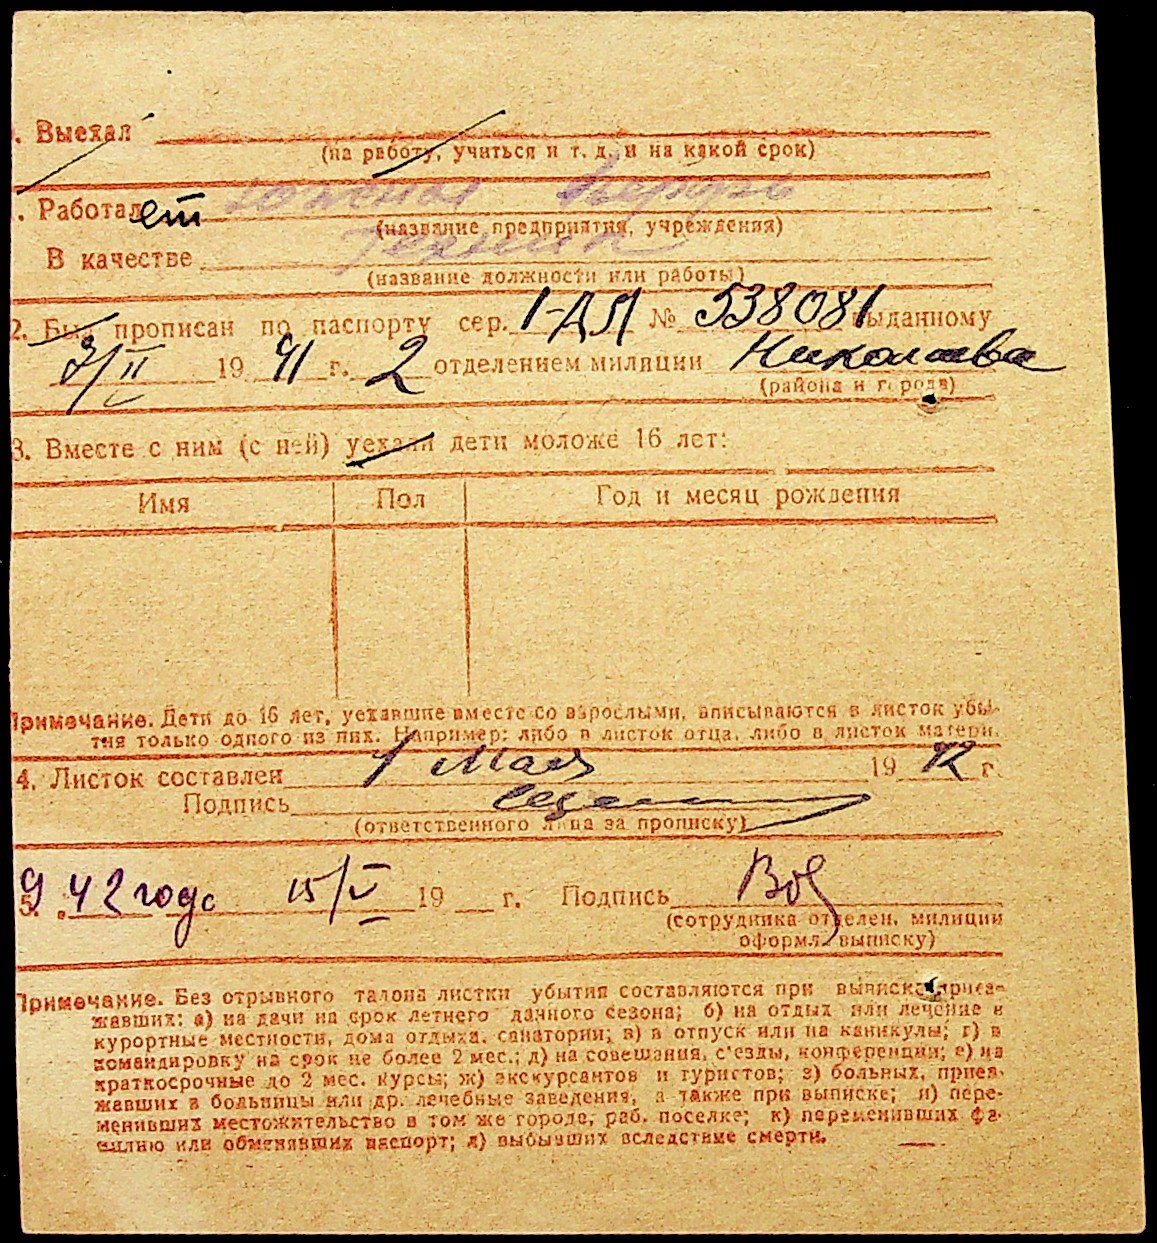 . Выехал
(на работу, учиться и т. д. и на какой срок)
. Работает
(название предприятия, учреждения)
В качестве
(название должности или работы)
2. Был прописан по паспорту сер. 1-ДЛ № 538081 выданному
3/II 19 41 г. 2 отделением милиции Николаева
(района и города)
3. Вместе с ним (с ней) уехали дети моложе 16 лет:
Имя Пол Год и месяц рождения
Примечание. Дети до 16 лет, уехавшие вместе со взрослыми, вписываются в листок убы-
тия только одного из них. Например: либо в листок отца, либо в листок матери.
4. Листок составлен 1 Мая 19 42 г.
Подпись
(ответственного лица за прописку)
5. 42 года 15/V 19 г. Подпись
(сотрудника отделен. милиции
оформл. выписку)
Примечание. Без отрывного талона листки убытия составляются при выписке приез-
жавших: а) на дачи на срок летнего дачного сезона; б) на отдых или лечение в
курортные местности, дома отдыха, санатории; в) в отпуск или на каникулы; г) в
командировку на срок не более 2 мес.; д) на совещания, с'езды, конференции; е) на
краткосрочные до 2 мес. курсы; ж) экскурсантов и туристов; з) больных, приез-
жавших в больницы или др. лечебные заведения, а также при выписке; и) пере-
менивших местожительство в том же городе, раб. поселке; к) переменивших фа-
милию или обменявших паспорт; л) выбывших вследствие смерти.